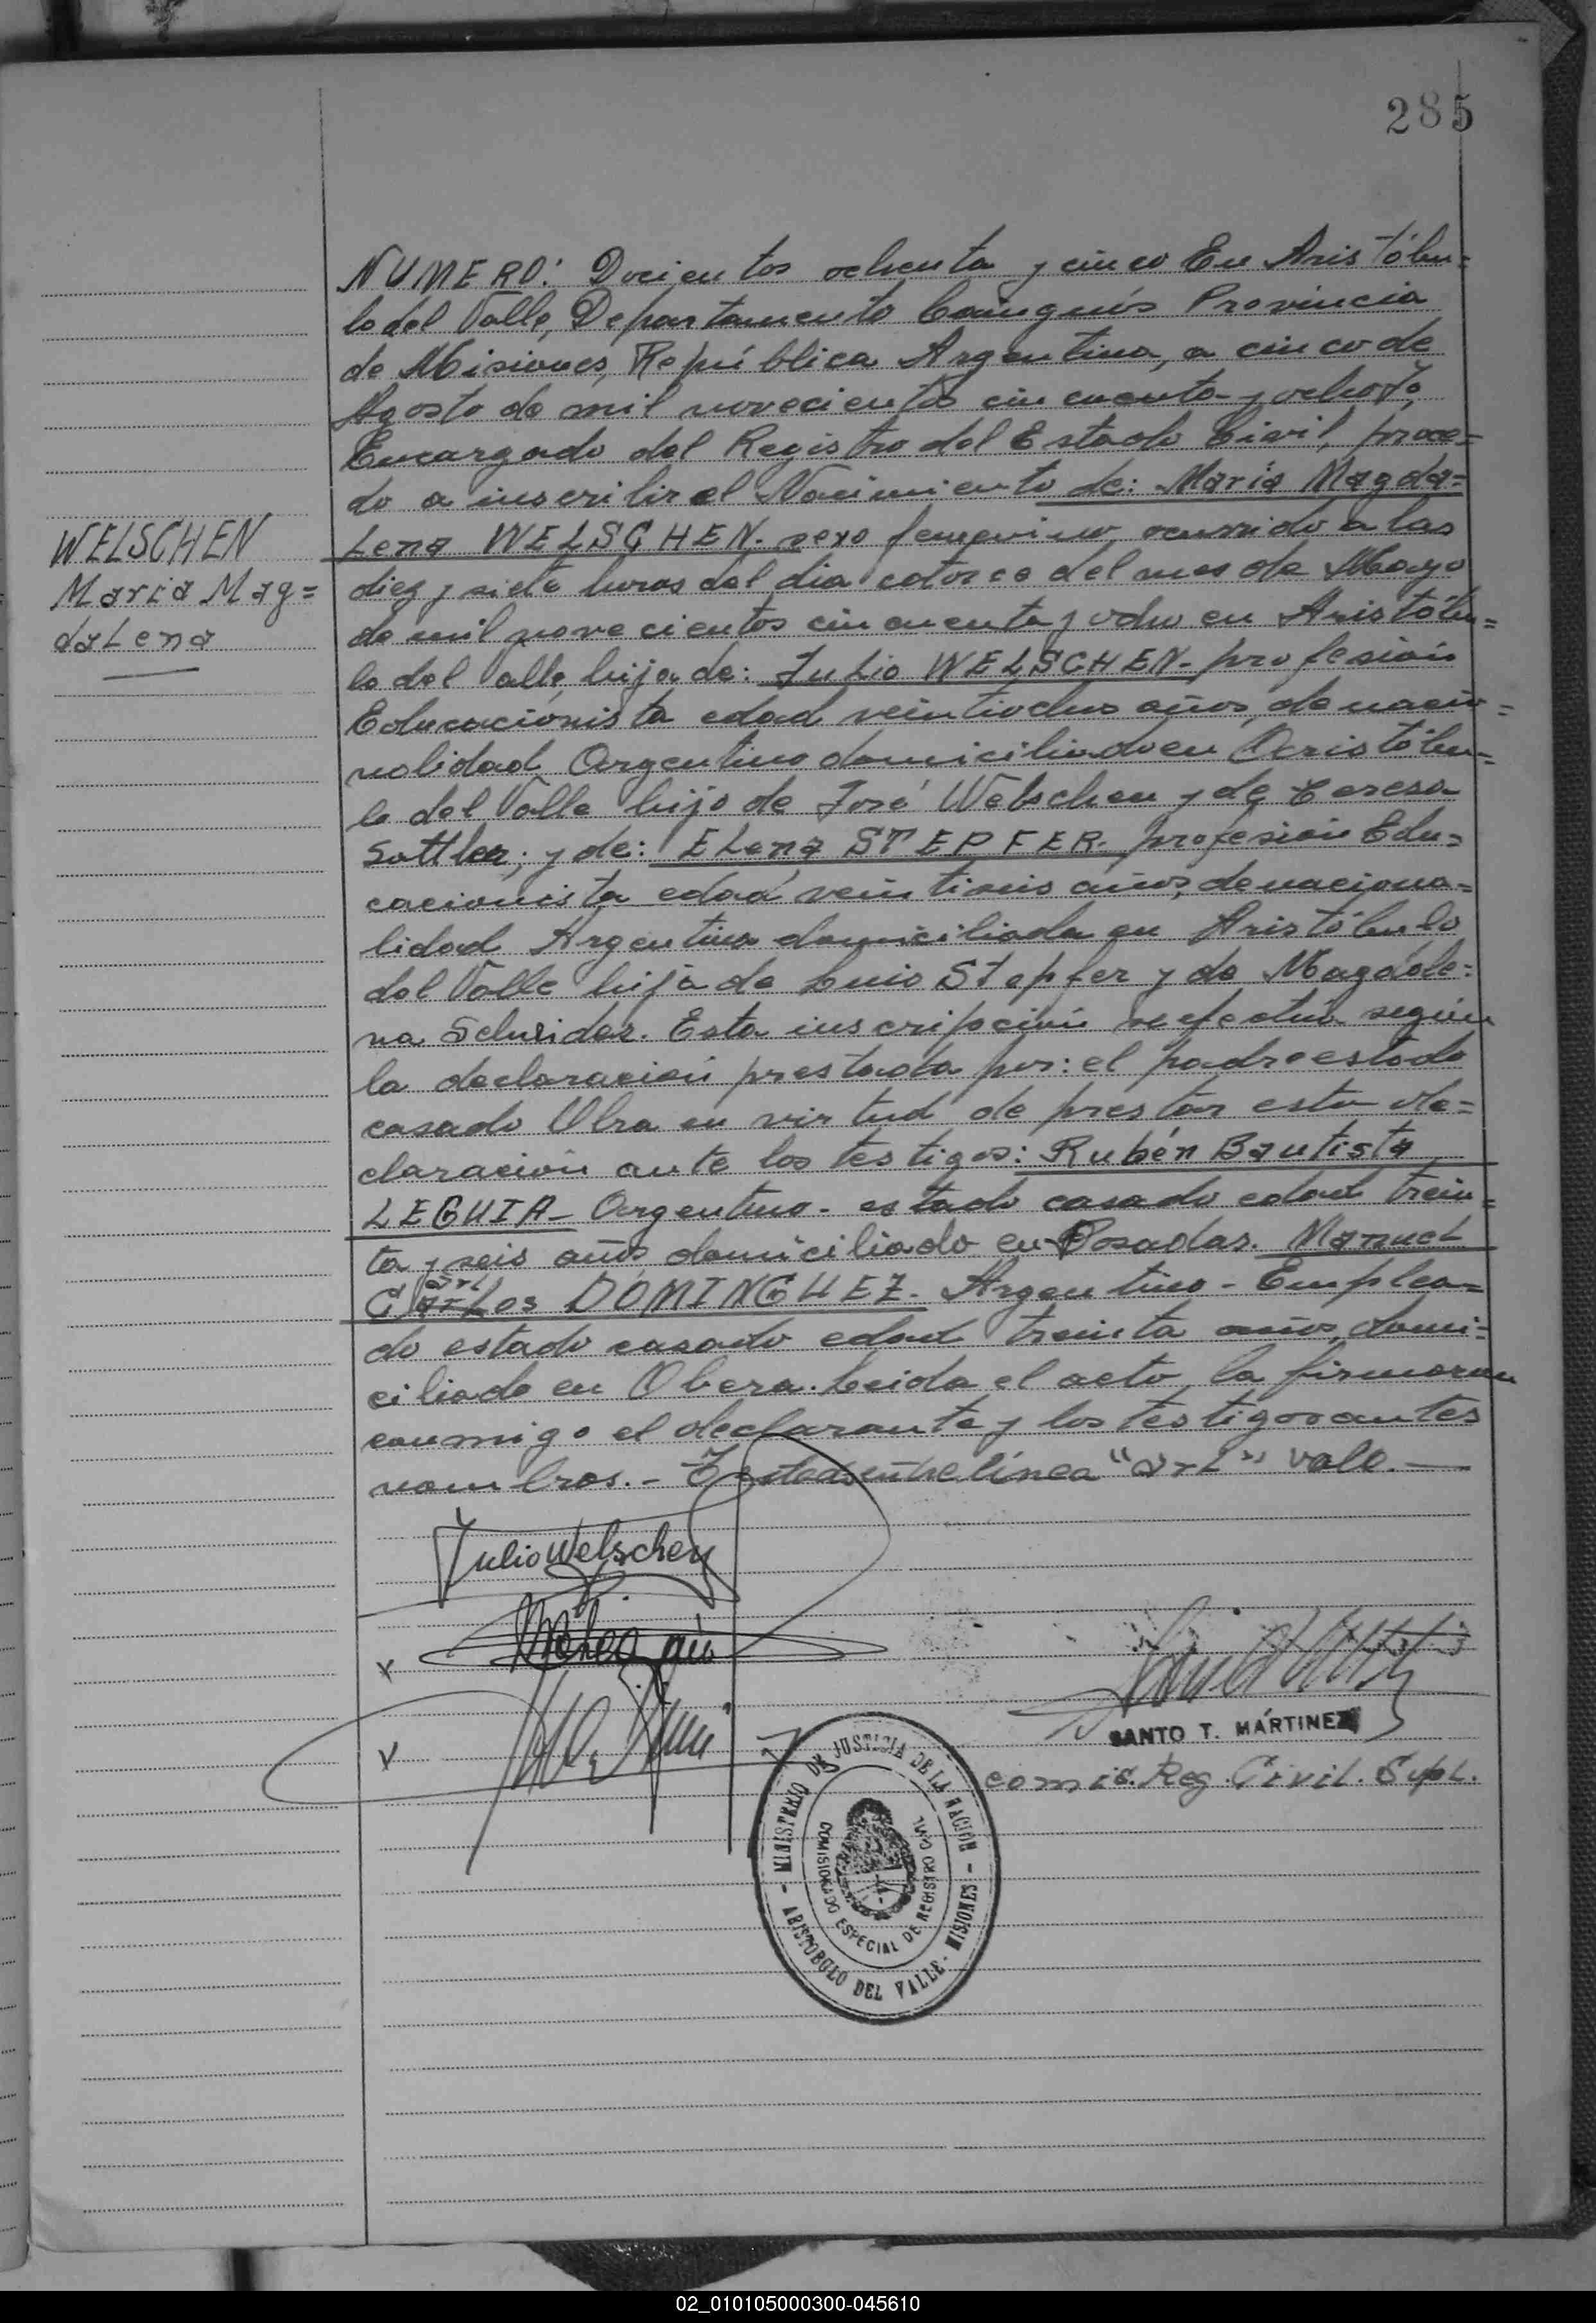 285
NUMERO: Docientos ochenta y cinco En Aristóbu=
lo del Valle, Departamento Cainguás Provincia
de Misiones, República Argentina, a cinco de
Agosto de mil novecientos cincuenta y ocho Yo,
Encargado del Registro del Estado Civil, proce=
do a inscribir el Nacimiento de: María Magda=
Lena WELSCHEN. sexo femenino, ocurrido a las
diez y siete horas del dia catorce del mes de Mayo
de mil novecientos cincuenta y ocho en Aristóbu=
lo del Valle, hija de: Julio WELSCHEN- profesión
Educacionista edad veintiocho años, de nacio=
nalidad Argentino domiciliado en Aristóbu=
lo del Valle hijo de José Welschen y de Teresa
Sattler; y de: ELena STEPFER. profesión Edu=
cacionista edad veintiseis años, de naciona=
lidad Argentina domiciliada en Aristóbulo
del Valle hija de Luis Stepfer y de Magdale=
na Schneider. Esta inscripción se efectúa según
la declaración prestada por: el padre estado
casado Obra en virtud de prestar esta de=
claración ante los testigos: Rubén Bautista
LEGUIA- Argentino- estado casado edad trein=
ta y seis años, domiciliado en Posadas. ManueL
arL
CarLos DOMINGUEZ. Argentino - Emplea=
do estado casado edad treinta años, domi=
ciliado en Obera. Leida el acto, la firmaron
conmigo el declarante y los testigos antes
nombros.- Testado entrelínea "arL" vale.
WELSCHEN
Maria Mag=
daLena
Julio Welschen
SANTO T. MÁRTINEZ
comis. Reg. Civil. SupL.
MINISTERIO DE JUSTICIA DE LA NACIÓN
COMISIONADO ESPECIAL DE REGISTRO CIVIL
- ARISTOBULO DEL VALLE - MISIONES -
02_010105000300-045610